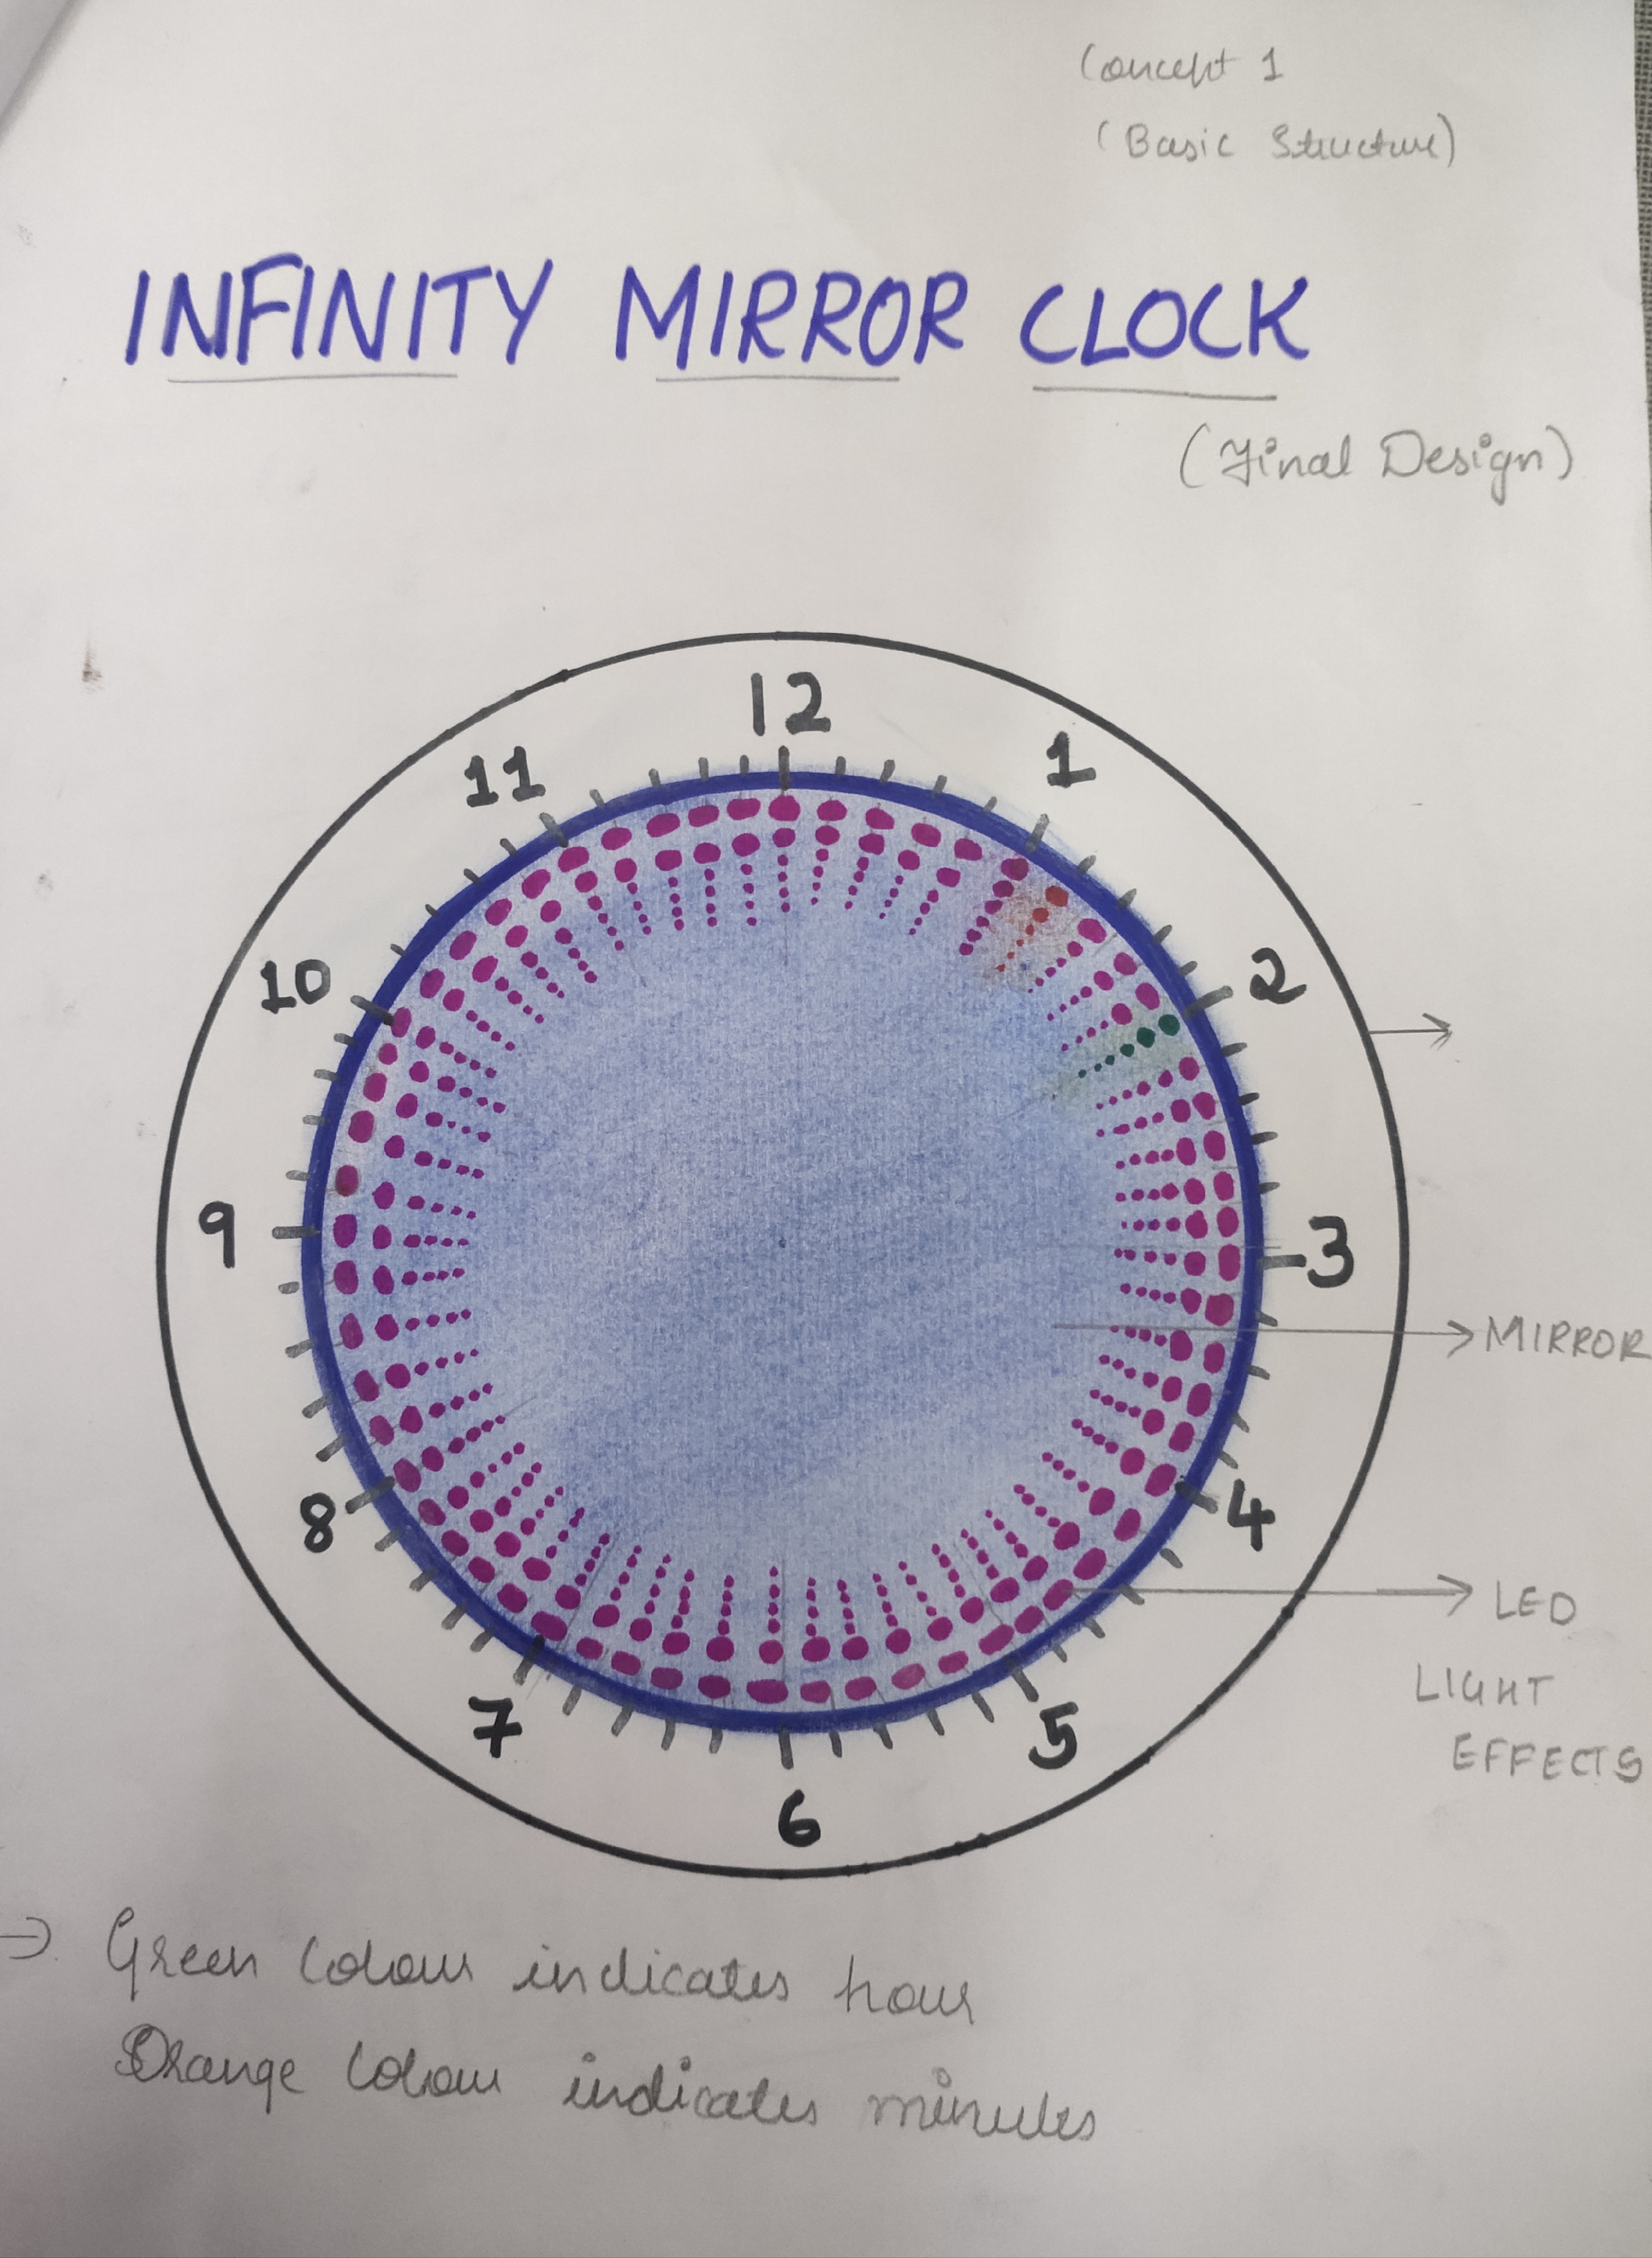 Concept 1
(Basic Structure)
INFINITY MIRROR CLOCK
(Final Design)
12
11
1
10
2
9
3
MIRROR
8
4
LED
LIGHT
EFFECTS
7
5
6
Green Colour indicates hour
Orange Colour indicates minutes